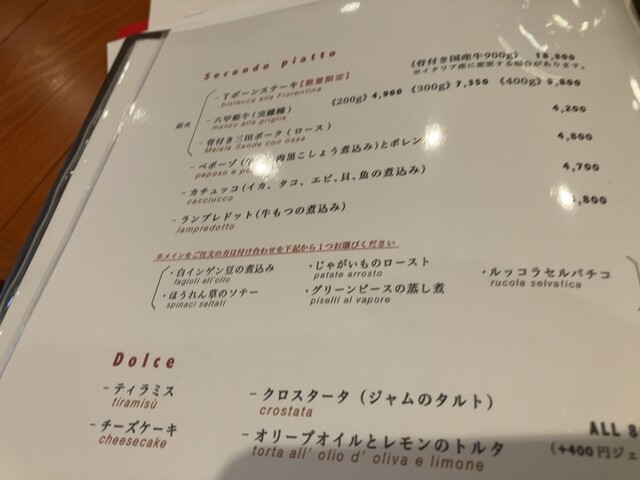 Secondo piatto
《骨付き国産牛900g》 18,800
※イタリア産に変更する場合があります。
- Tボーンステーキ【数量限定】
bistecca alla Fiorentina
炭火
- 六甲姫牛(交雑種) 《200g》 4,900 《300g》 7,350 《400g》 9,800
manzo alla griglia
- 骨付き三田ポーク(ロース) 4,200
Maiale Sanda con ossa
- ペポーゾ 肉黒こしょう煮込み)とポレン 4,800
peposo e
- カチュッコ(イカ、タコ、エビ、貝、魚の煮込み) 4,700
cacciucco
- ランプレドット(牛もつの煮込み) ,800
lampredotto
※メインをご注文の方は付け合わせを下記から1つお選びください
・白インゲン豆の煮込み ・じゃがいものロースト ・ルッコラセルバチコ
fagioli all'olio patate arrosto rucola selvatica
・ほうれん草のソテー ・グリーンピースの蒸し煮
spinaci saltati piselli al vapore
Dolce
- ティラミス - クロスタータ (ジャムのタルト)
tiramisù crostata
- チーズケーキ - オリーブオイルとレモンのトルタ ALL 8
cheesecake torta all' olio d' oliva e limone (+400円ジェ